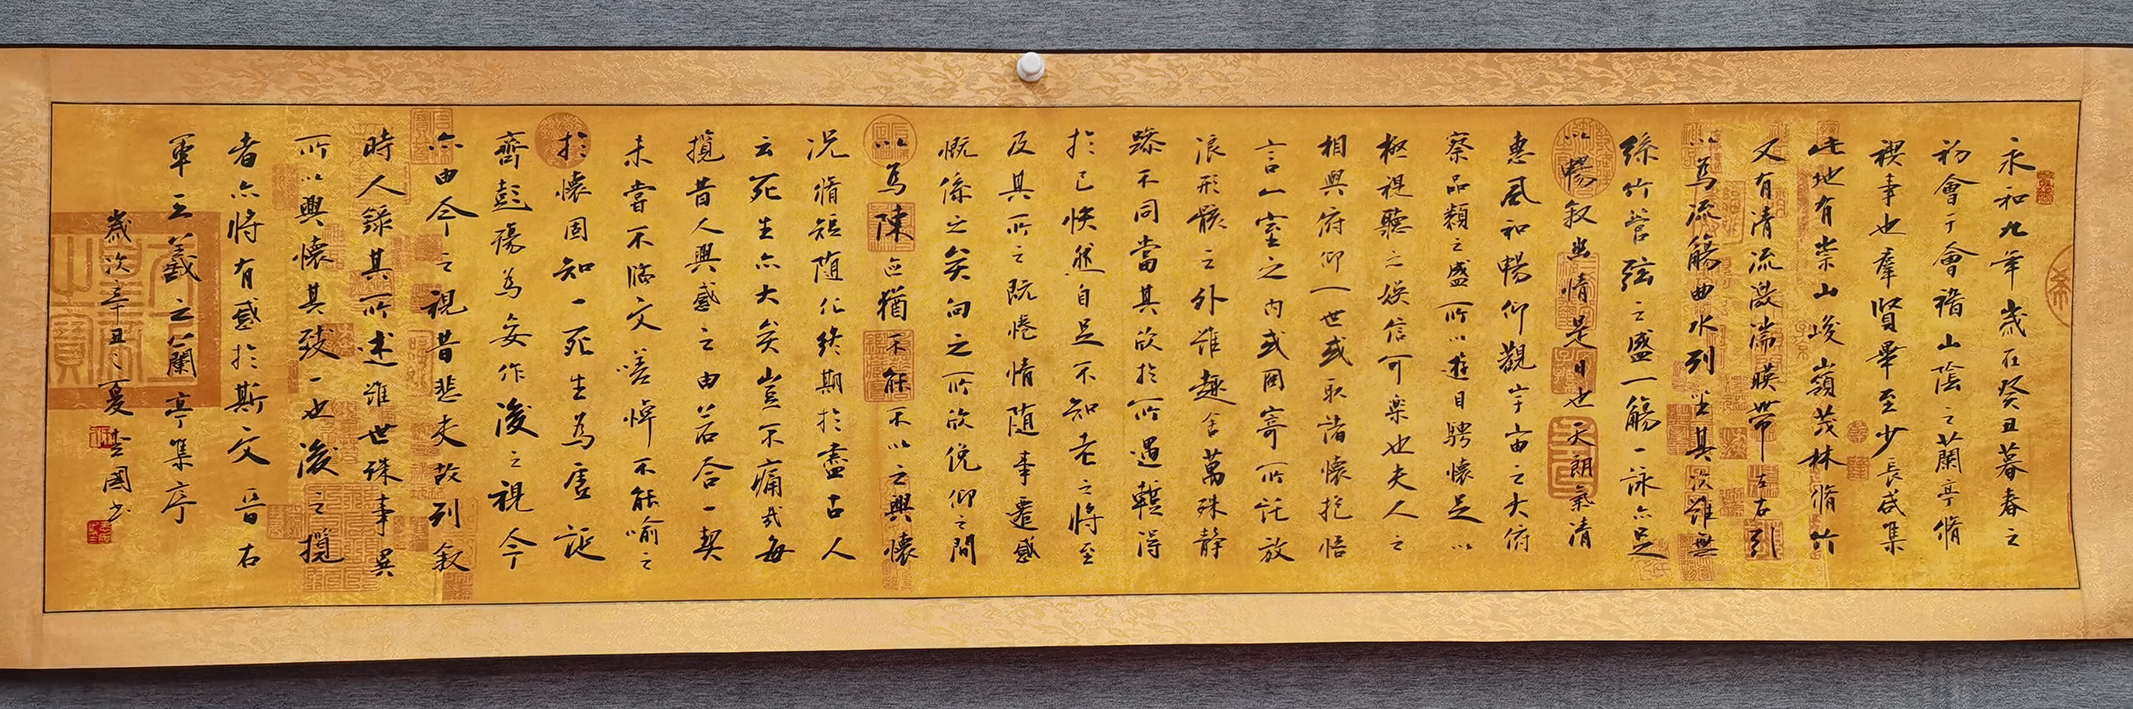 永和九年歲在癸丑暮春之
初會于會稽山陰之蘭亭脩
禊事也羣賢畢至少長咸集
此地有崇山峻嶺茂林脩竹
又有清流激湍暎帶左右引
以為流觴曲水列坐其次雖無
絲竹管弦之盛一觴一詠亦足
以暢敘幽情是日也天朗氣清
惠風和暢仰觀宇宙之大俯
察品類之盛所以遊目騁懷足以
極視聽之娛信可樂也夫人之
相與俯仰一世或取諸懷抱悟
言一室之內或因寄所託放
浪形骸之外雖趣舍萬殊靜
躁不同當其欣於所遇蹔得
於己快然自足不知老之將至
及其所之既惓情隨事遷感
慨係之矣向之所欣俛仰之間
以為陳迹猶不能不以之興懷
況脩短隨化終期於盡古人
云死生亦大矣豈不痛哉每
攬昔人興感之由若合一契
未嘗不臨文嗟悼不能喻之
於懷固知一死生為虛誕
齊彭殤為妄作後之視今
亦由今之視昔悲夫故列敘
時人錄其所述雖世殊事異
所以興懷其致一也後之攬
者亦將有感於斯文晉右
軍王羲之蘭亭集序
歲次辛丑之夏國書